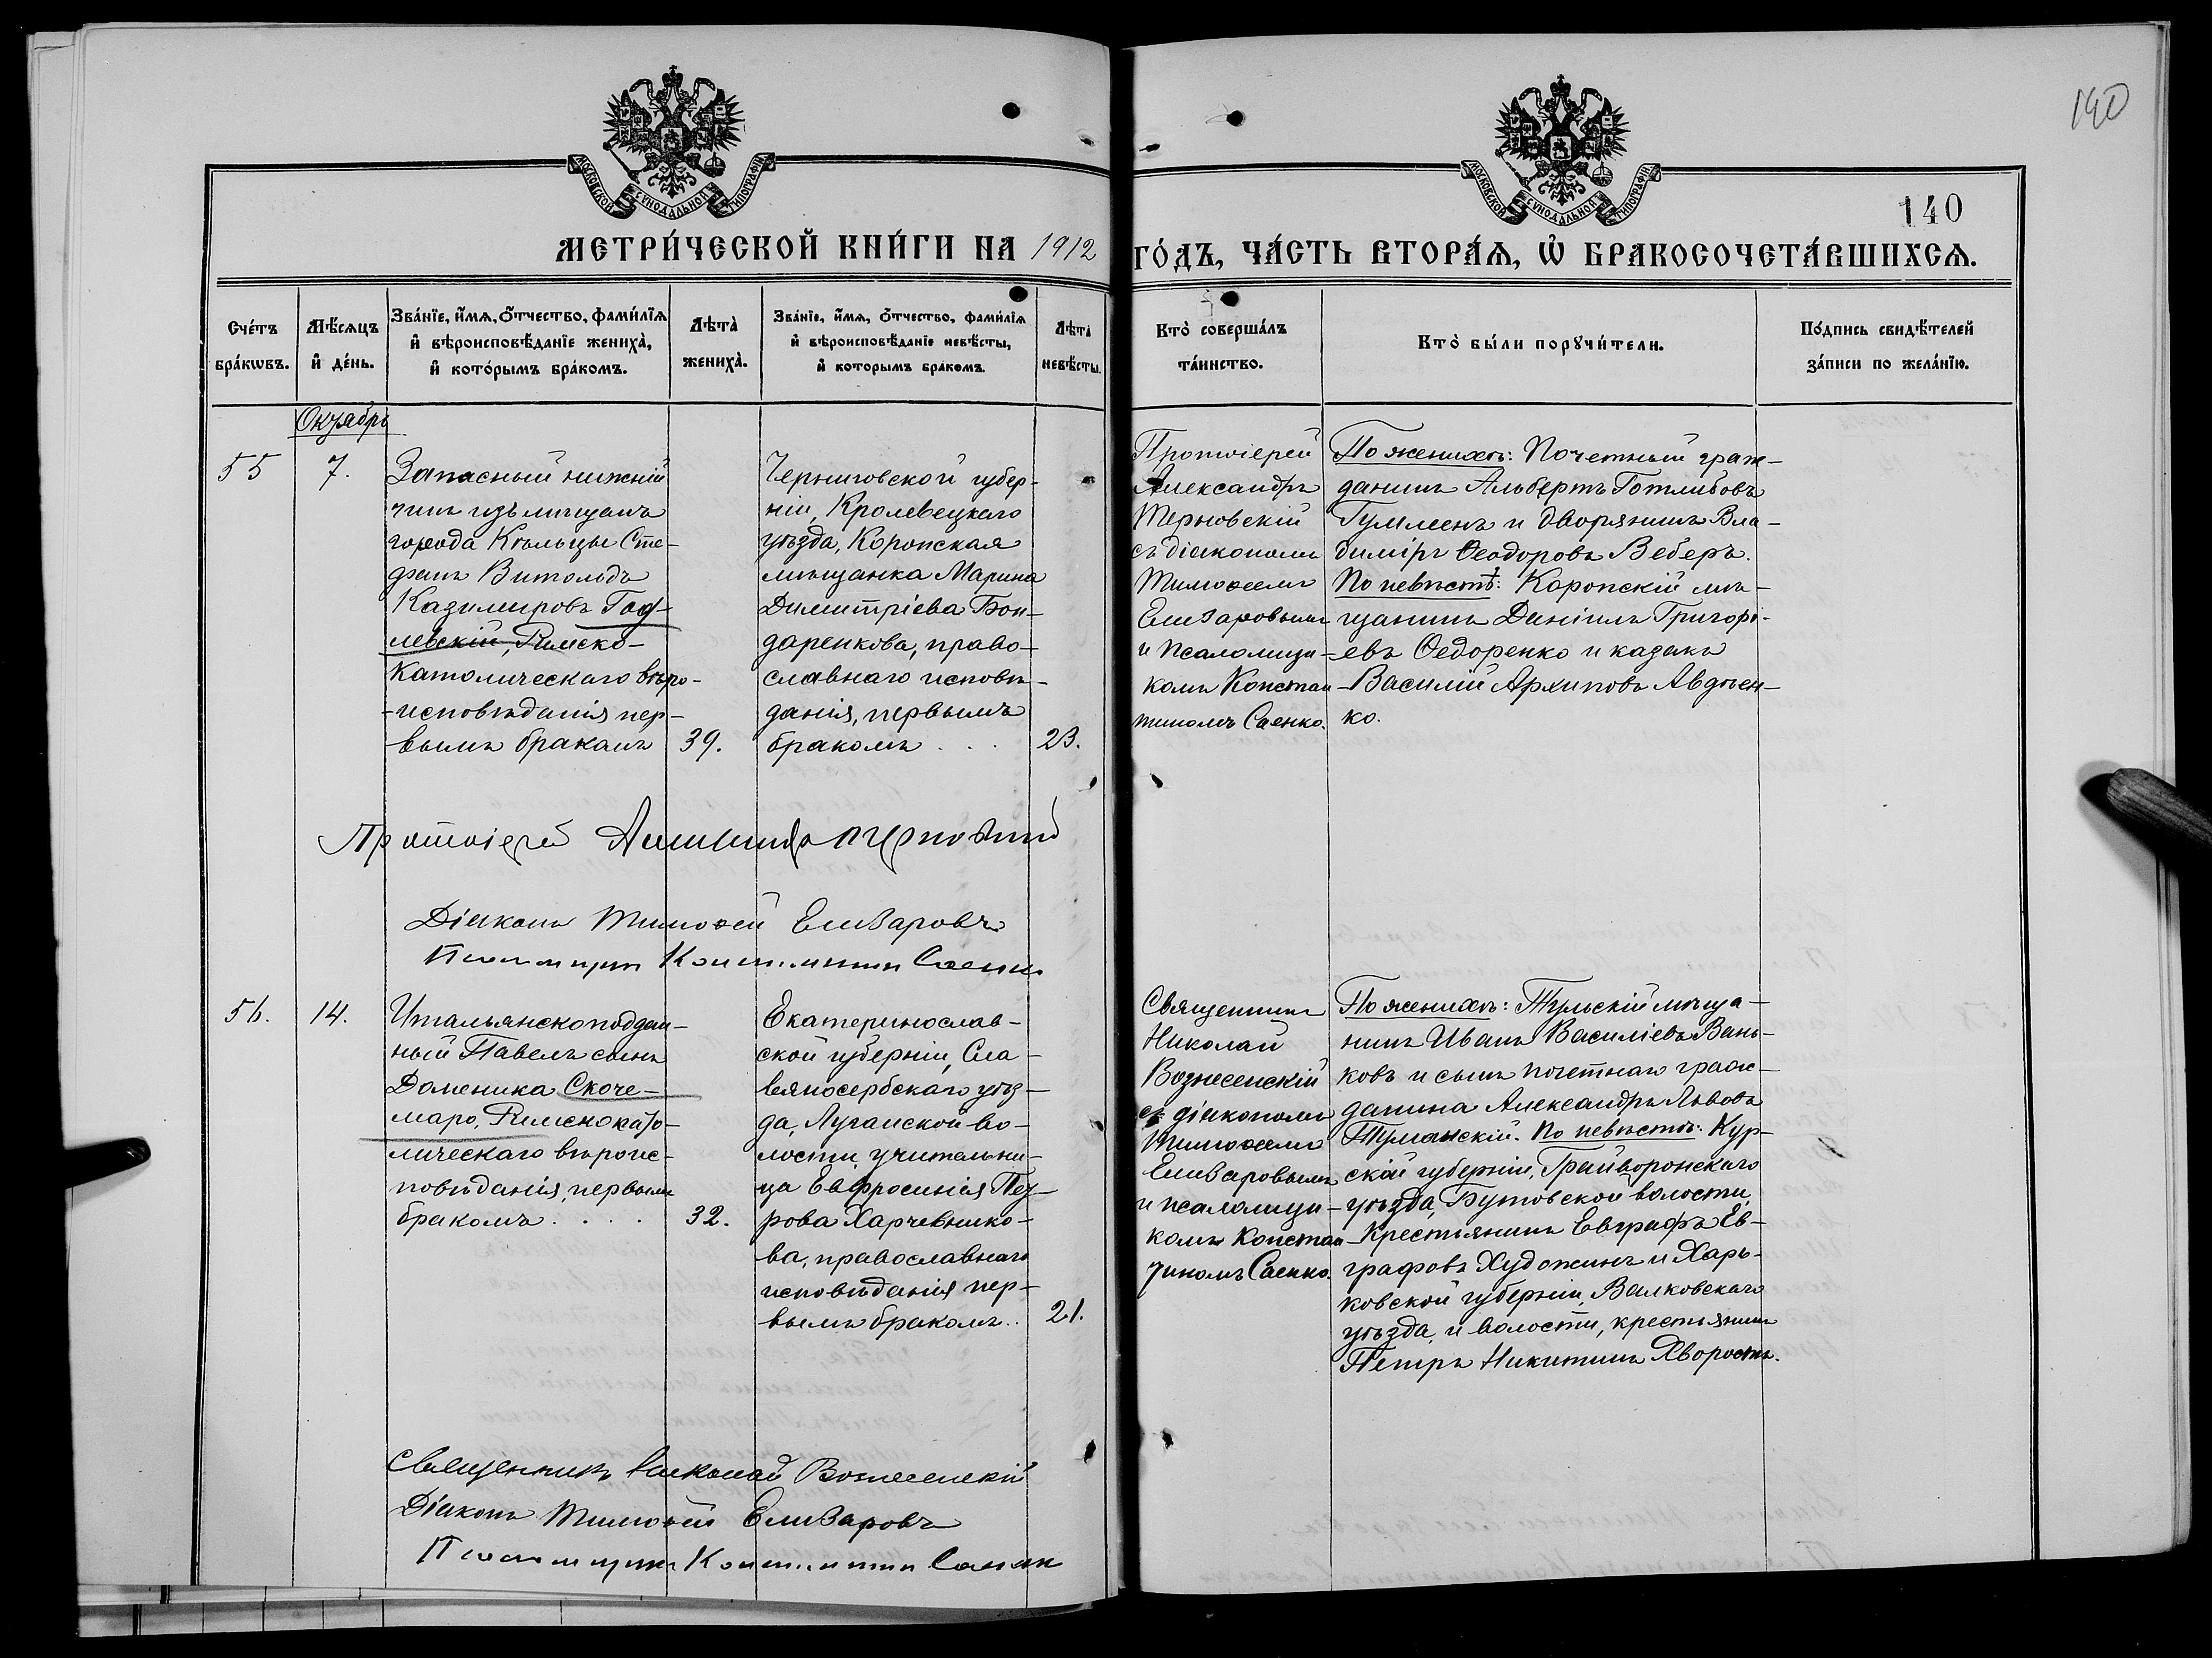 140
МОСКОВСКОЙ СѴНОДАЛЬНОЙ ТИПОГРАФІИ
МОСКОВСКОЙ СѴНОДАЛЬНОЙ ТИПОГРАФІИ
140
МЕТРИ́ЧЕСКОЙ КНИ́ГИ НА 1912 ГО́ДЪ, ЧА́СТЬ ВТОРА́Ѧ, Ѡ҆ БРАКОСОЧЕТА́ВШИХСѦ.
Сче́тъ
бра́кѡвъ.
Мѣ́сѧцъ
и҆ де́нь.
Зва́нїе, и҆́мѧ, ѻ҆́тчество, фами́лїѧ
и҆ вѣроисповѣ́данїе жениха̀,
и҆ кото́рымъ бра́комъ.
Лѣта̀
жениха̀.
Зва́нїе, и҆́мѧ, ѻ҆́тчество, фами́лїѧ
и҆ вѣроисповѣ́данїе невѣ́сты,
и҆ которымъ бракомъ.
Лѣта̀
невѣ́сты.
Кто̀ соверша́лъ
та́инство.
Кто̀ бы́ли порꙋчи́тели.
По́дпись свидѣ́телей
за́писи по жела́нїю.
Октябрь
55
7.
Запасный нижній
чинъ изъ мѣщанъ
города Кѣльцы Сте-
фанъ Витольдъ
Казимировъ Год-
левскій, Римско-
Католическаго вѣро-
-исповѣданія пер-
-вымъ бракомъ
39.
Черниговской губер-
ніи, Кролевецкаго
уѣзда, Коропская
мѣщанка Марина
Димитріева Бон-
даренкова, право-
славнаго исповѣ-
данія, первымъ
бракомъ . . .
23.
Протоіерей
Александръ
Терновскій
съ діакономъ
Тимоѳеемъ
Елизаровымъ
и псаломщи-
комъ Констан-
тиномъ Саенко.
По женихѣ: Почетный граж-
данинъ Альбертъ Готлибовъ
Гумленъ и дворянинъ Вла-
диміръ Ѳеодоровъ Веберъ.
По невѣстѣ: Коропскій мѣ-
щанинъ Даніилъ Григорі-
евъ Ѳедоренко и казакъ
Василій Архиповъ Авдѣен-
ко.
Протоіерей Александръ Терновскій
Діаконъ Тимоѳей Елизаровъ
Псаломщикъ Константинъ Саенко
56.
14.
Итальянскоподдан-
ный Павелъ сынъ
Доменика Скоче-
маро, Римскокато-
лическаго вѣроис-
повѣданія, первымъ
бракомъ . . . .
32.
Екатеринослав-
ской губерніи, Сла-
вяносербскаго уѣз-
да, Луганской во-
лости, учительни-
ца Евфросинія Пет-
рова Харчевнико-
ва, православнаго
исповѣданія пер-
вымъ бракомъ..
21.
Священникъ
Николай
Вознесенскій
съ діакономъ
Тимоѳеемъ
Елизаровымъ
и псаломщи-
комъ Констан-
тиномъ Саенко.
По женихѣ: Тульскій мѣща-
нинъ Иванъ Василіевъ Вань-
ковъ и сынъ почетнаго граж-
данина Александръ Львовъ
Туманскій. По невѣстѣ: Кур-
ской губерніи, Грайворонскаго
уѣзда, Бутовской волости,
Крестьянинъ Евграфъ Ев-
графовъ Художинъ и Харь-
ковской губерніи, Валковскаго
уѣзда и волости, крестьянинъ
Петръ Никитинъ Хворостъ.
Священникъ Николай Вознесенскій
Діаконъ Тимоѳей Елизаровъ
Псаломщикъ Константинъ Саенко